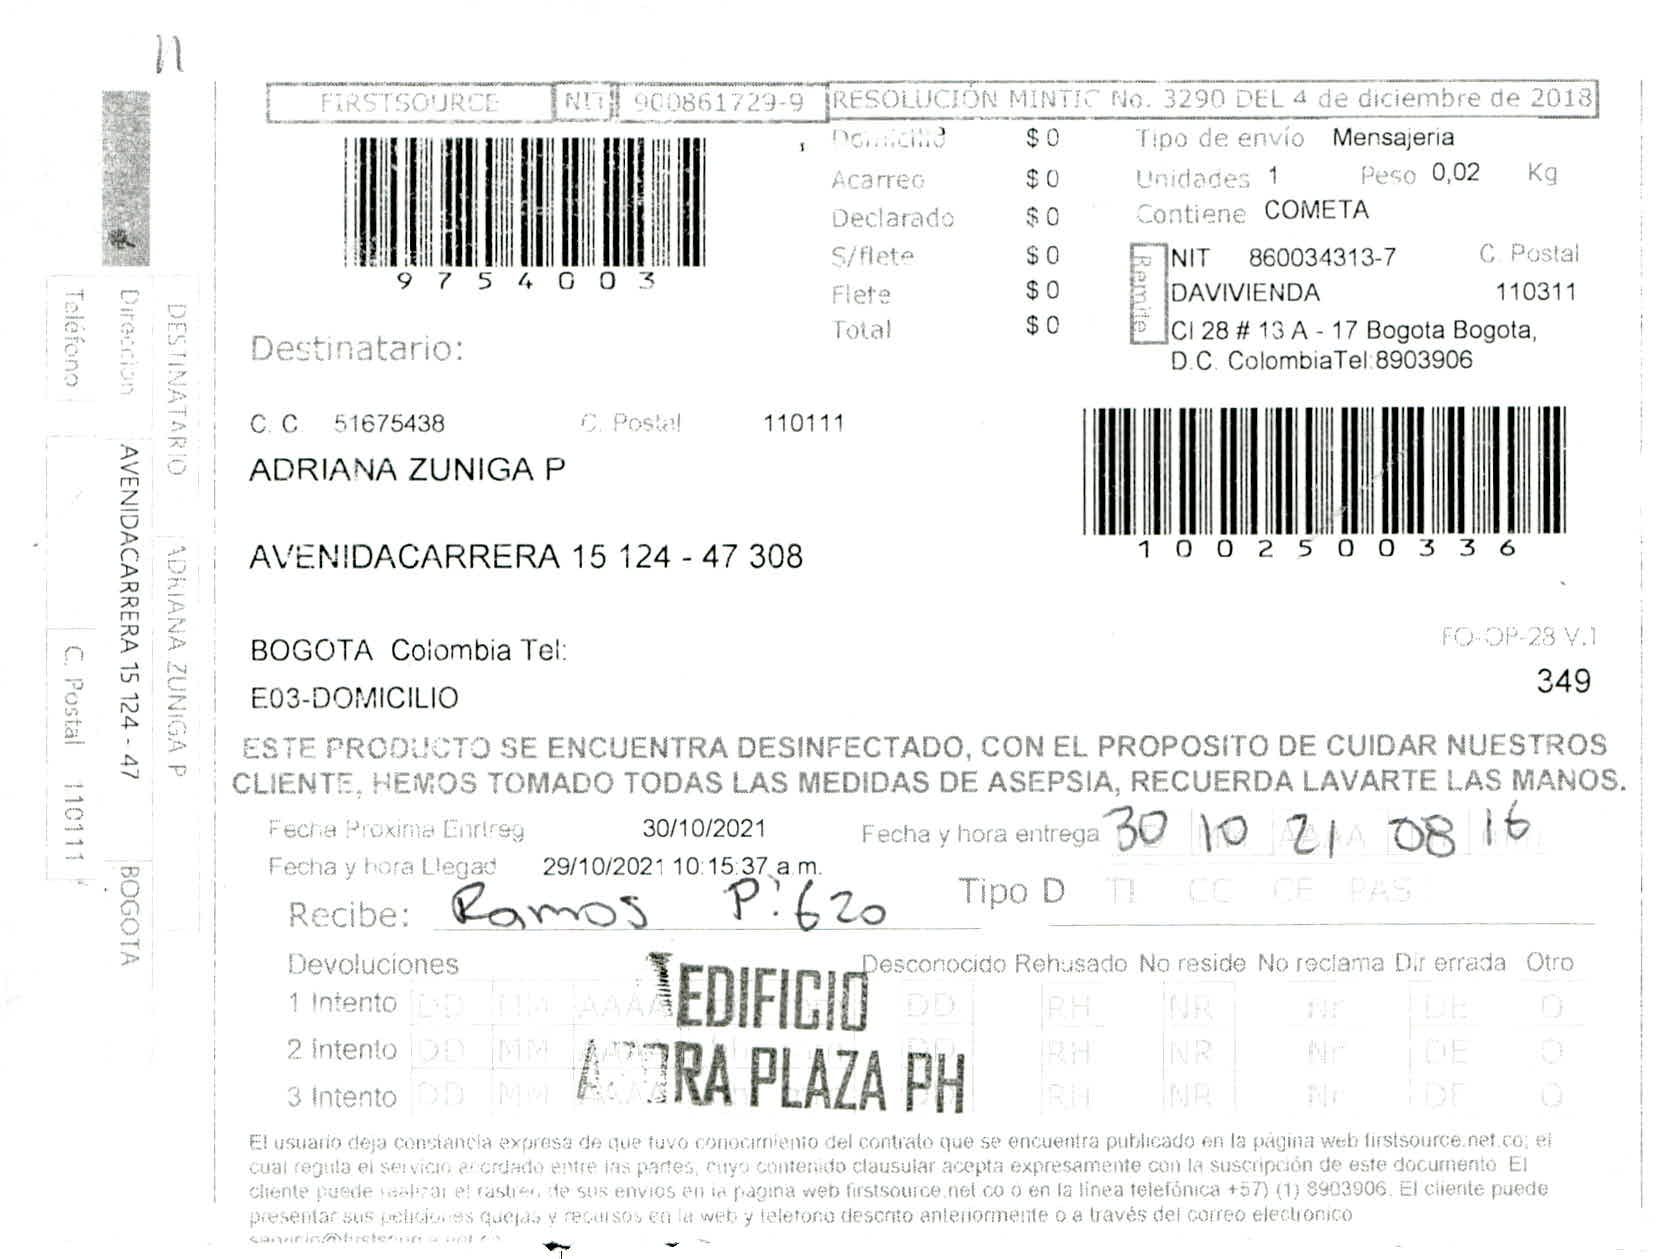 11
FIRSTSOURCE NIT 900861729-9 RESOLUCIÓN MINTIC No. 3290 DEL 4 de diciembre de 2018
9754003
Domicilio $ 0
Acarreo $ 0
Declarado $ 0
S/flete $ 0
Flete $ 0
Total $ 0
Tipo de envío Mensajeria
Unidades 1 Peso 0,02 Kg
Contiene COMETA
Remite
NIT 860034313-7 C. Postal
DAVIVIENDA 110311
Cl 28 # 13 A - 17 Bogota Bogota,
D.C. ColombiaTel:8903906
Destinatario:
C. C 51675438 C. Postal 110111
ADRIANA ZUNIGA P
AVENIDACARRERA 15 124 - 47 308
1002500336
BOGOTA Colombia Tel:
E03-DOMICILIO
FO-OP-28 V.1
349
ESTE PRODUCTO SE ENCUENTRA DESINFECTADO, CON EL PROPOSITO DE CUIDAR NUESTROS
CLIENTE, HEMOS TOMADO TODAS LAS MEDIDAS DE ASEPSIA, RECUERDA LAVARTE LAS MANOS.
Fecha Proxima Enrtreg 30/10/2021 Fecha y hora entrega 30 10 21 08 16
Fecha y hora Llegad 29/10/2021 10:15:37 a.m.
Recibe: Ramos P. 620 Tipo D TI CC CE PAS
Devoluciones Desconocido Rehusado No reside No reclama Dir errada Otro
1 Intento DD MM AAAA DD RH NR Nr DE O
2 Intento DD MM AAAA DD RH NR Nr DE O
3 Intento DD MM AAAA RH NR Nr DE O
EDIFICIO
PLAZA PH
El usuario deja constancia expresa de que tuvo conocimiento del contrato que se encuentra publicado en la página web firstsource.net.co; el
cual regula el servicio acordado entre las partes, cuyo contenido clausular acepta expresamente con la suscripción de este documento El
cliente puede realizar el rastreo de sus envios en la pagina web firstsource.net co o en la línea telefónica +57) (1) 8903906. El cliente puede
presentar sus peticiones quejas y recursos en la web y telefono descrito anteriormente o a través del correo electronico
DESTINATARIO ADRIANA ZUNIGA P
Direccion AVENIDACARRERA 15 124 - 47 BOGOTA
Teléfono C. Postal 110111